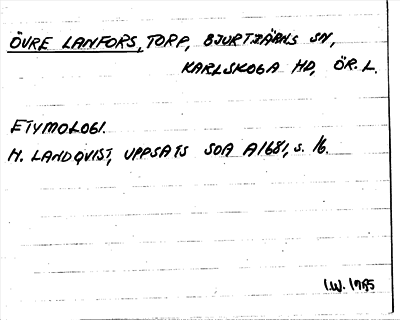 ÖVRE LANFORS, TORP, BJURTJÄRNS SN,
KARLSKOGA HD, ÖR. L.
ETYMOLOGI.
H. LANDQVIST, UPPSATS SOA A1681, s. 16.
I.W. 1985